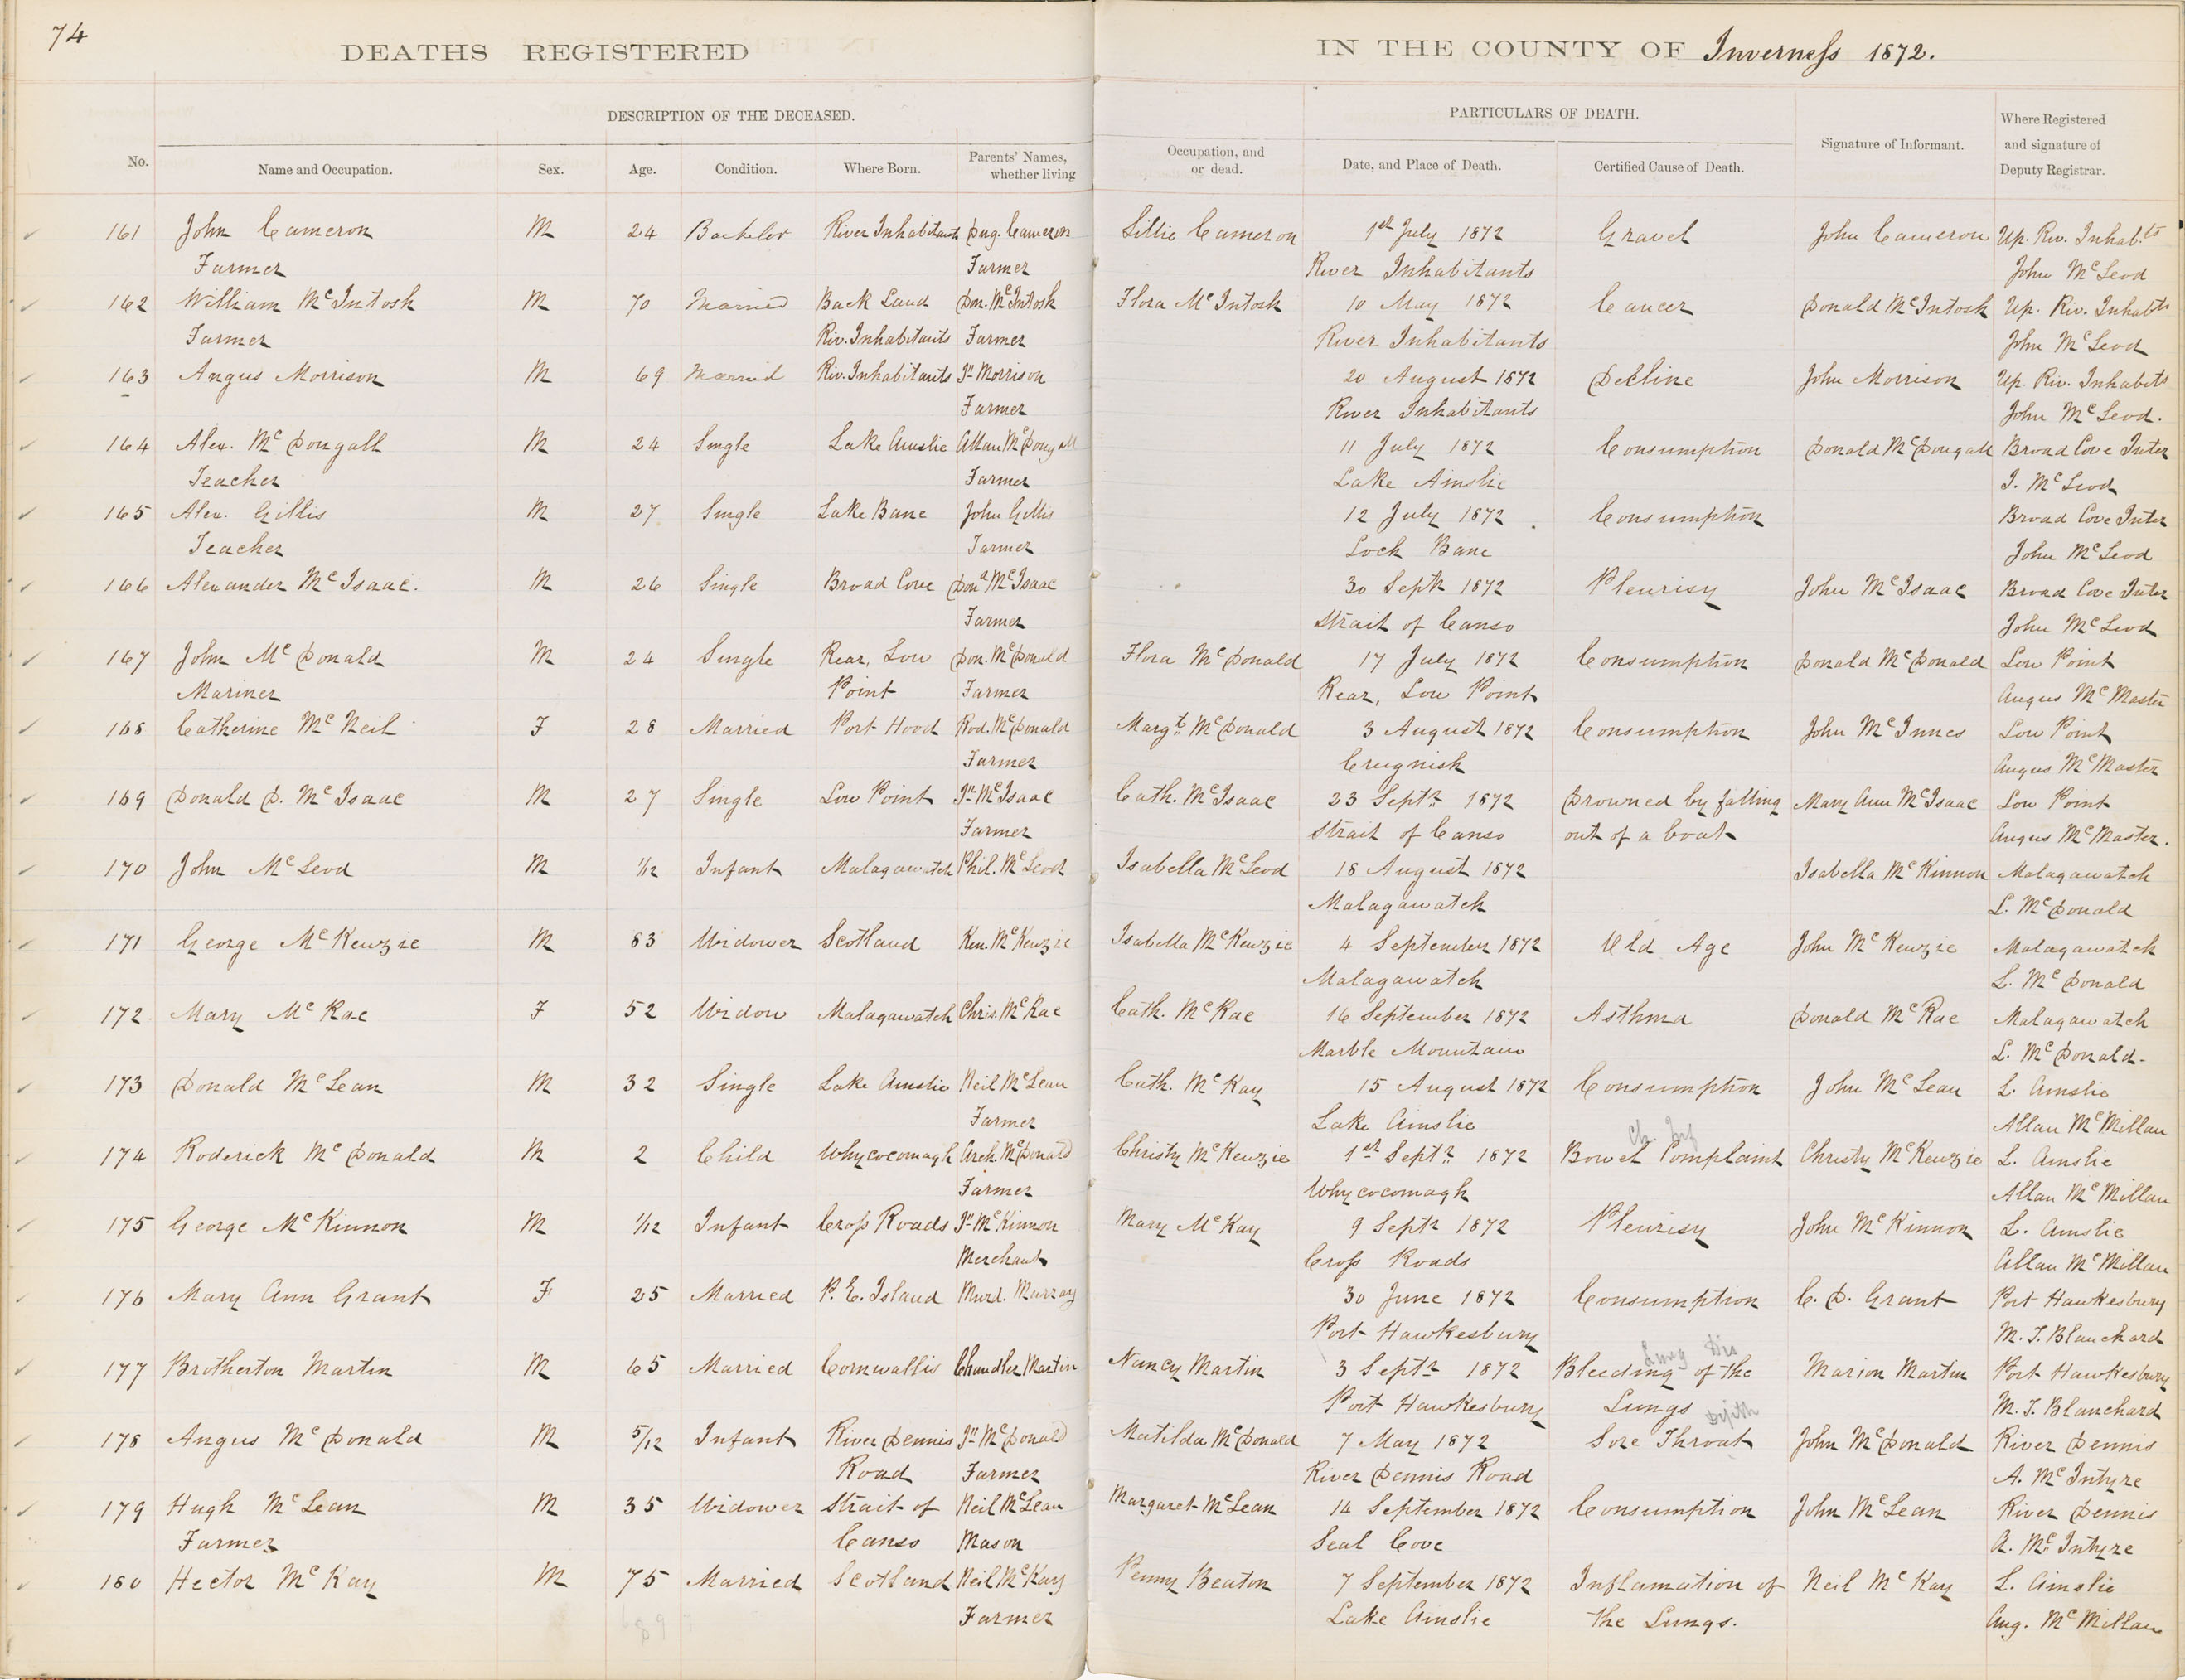 74
DEATHS REGISTERED IN THE COUNTY OF Inverness 1872.
DESCRIPTION OF THE DECEASED. PARTICULARS OF DEATH.
No. Name and Occupation. Sex. Age. Condition. Where Born. Parents' Names, whether living Occupation, and or dead. Date, and Place of Death. Certified Cause of Death. Signature of Informant. Where Registered and signature of Deputy Registrar.
161 John Cameron M 24 Bachelor River Inhabitants Dug. Cameron Lillie Cameron 1st July 1872 Gravel John Cameron Up. Riv. Inhab.ts
Farmer Farmer River Inhabitants John McLeod
162 William McIntosh M 70 Married Back Land Don. McIntosh Flora McIntosh 10 May 1872 Cancer Donald McIntosh Up. Riv. Inhabts
Farmer Riv. Inhabitants Farmer River Inhabitants John McLeod
163 Angus Morrison M 69 Married Riv. Inhabitants Jn Morrison 20 August 1872 Decline John Morrison Up. Riv. Inhabits
Farmer River Inhabitants John McLeod.
164 Alex. McDougall M 24 Single Lake Ainslie Allan McDougall 11 July 1872 Consumption Donald McDougall Broad Cove Inter
Teacher Farmer Lake Ainslie J. McLeod
165 Alex. Gillis M 27 Single Lake Bane John Gillis 12 July 1872 Consumption Broad Cove Inter
Teacher Farmer Lock Bane John McLeod
166 Alexander McIsaac. M 26 Single Broad Cove Dond McIsaac 30 Septr 1872 Pleurisy John McIsaac Broad Cove Inter
Farmer Strait of Canso John McLeod
167 John McDonald M 24 Single Rear, Low Don. McDonald Flora McDonald 17 July 1872 Consumption Donald McDonald Low Point
Mariner Point Farmer Rear, Low Point Angus McMaster
168 Catherine McNeil F 28 Married Port Hood Rod. McDonald Margt. McDonald 3 August 1872 Consumption John McInnes Low Point
Farmer Creignish Angus McMaster
169 Donald D. McIsaac M 27 Single Low Point Jn McIsaac Cath. McIsaac 23 Septr 1872 Drowned by falling Mary Ann McIsaac Low Point
Farmer Strait of Canso out of a boat Angus McMaster.
170 John McLeod M 1/12 Infant Malagawatch Phil. McLeod Isabella McLeod 18 August 1872 Isabella McKinnon Malagawatch
Malagawatch L. McDonald
171 George McKenzie M 83 Widower Scotland Ken. McKenzie Isabella McKenzie 4 September 1872 Old Age John McKenzie Malagawatch
Malagawatch L. McDonald
172 Mary McRae F 52 Widow Malagawatch Chris. McRae Cath. McRae 16 September 1872 Asthma Donald McRae Malagawatch
Marble Mountain L. McDonald-
173 Donald McLean M 32 Single Lake Ainslie Neil McLean Cath. McKay 15 August 1872 Consumption John McLean L. Ainslie
Farmer Lake Ainslie Allan McMillan
174 Roderick McDonald M 2 Child Whycocomagh Arch. McDonald Christy McKenzie 1st Septr 1872 Bowel Complaint Christy McKenzie L. Ainslie
Farmer Whycocomagh Allan McMillan
175 George McKinnon M 1/12 Infant Cross Roads Jn McKinnon Mary McKay 9 Septr 1872 Pleurisy John McKinnon L. Ainslie
Merchant Cross Roads Allan McMillan
176 Mary Ann Grant F 25 Married P. E. Island Murd. Murray 30 June 1872 Consumption C. D. Grant Port Hawkesbury
Port Hawkesbury M. J. Blanchard
Lung Dis
177 Brotherton Martin M 65 Married Cornwallis Chandler Martin Nancy Martin 3 Septr 1872 Bleeding of the Marion Martin Port Hawkesbury
Port Hawkesbury Lungs M. J. Blanchard
Dipth
178 Angus McDonald M 5/12 Infant River Dennis Jn McDonald Matilda McDonald 7 May 1872 Sore Throat John McDonald River Dennis
Road Farmer River Dennis Road A. McIntyre
179 Hugh McLean M 35 Widower Strait of Neil McLean Margaret McLean 14 September 1872 Consumption John McLean River Dennis
Farmer Canso Mason Seal Cove A. McIntyre
180 Hector McKay M 75 Married Scotland Neil McKay Penny Beaton 7 September 1872 Inflamation of Neil McKay L. Ainslie
Farmer Lake Ainslie the Lungs. Aug. McMillan